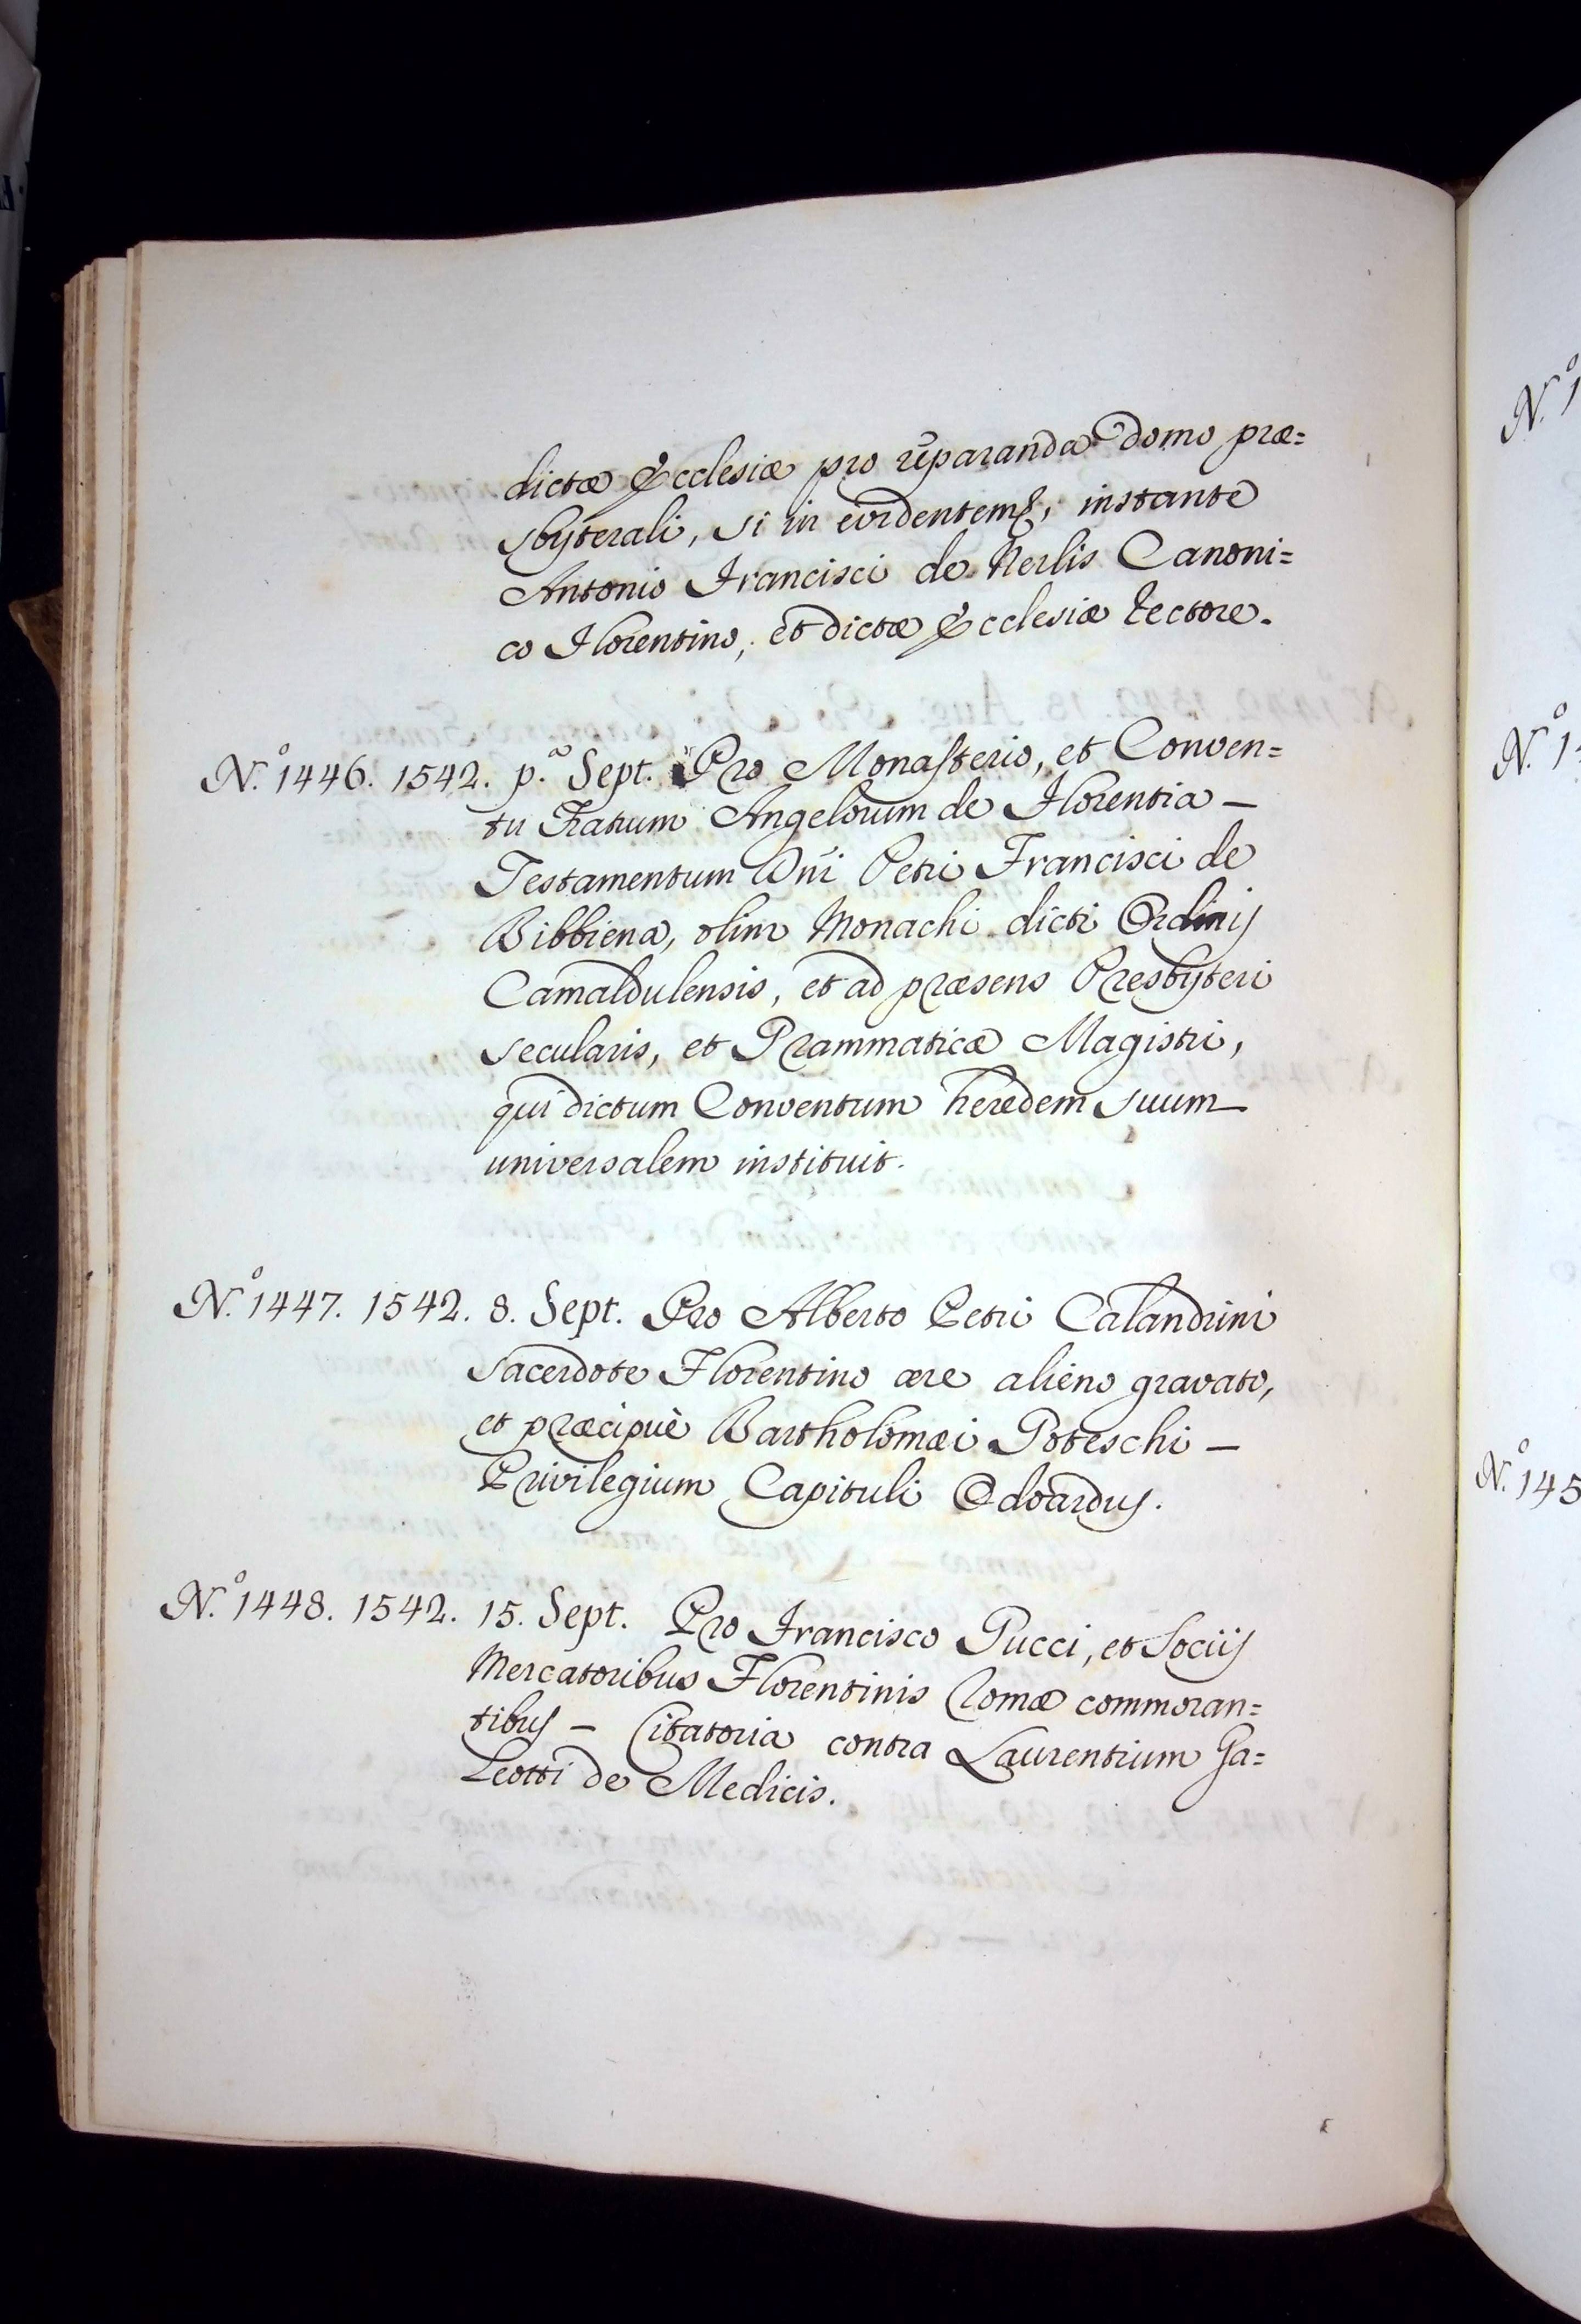 dictæ Ecclesiæ pro reparanda domo præ=
sbyterali, si in evidentem, instante
Antonio Francisci de Nerlis Canoni=
co Florentino, et dictæ Ecclesiæ Rectore.
N.º 1446. 1542. p.ª Sept. Pro Monasterio, et Conven=
tu Fratrum Angelorum de Florentia –
Testamentum Dñi Petri Francisci de
Bibbiena, olim Monachi dicti Ordinis
Camaldulensis, et ad præsens Presbyteri
secularis, et Grammaticæ Magistri,
qui dictum Conventum heredem suum
universalem instituit.
N.º 1447. 1542. 8. Sept. Pro Alberto Petri Calandrini
sacerdote Florentino ære alieno gravato,
et præcipuè Bartholomæi Poteschi –
Privilegium Capituli Odoardus.
N.º 1448. 1542. 15. Sept. Pro Francisco Pucci, et Sociis
Mercatoribus Florentinis Romæ commoran=
tibus – Citatoria contra Laurentium Ga=
Leotti de Medicis.
N.º 1
N.º 1
N.º 145